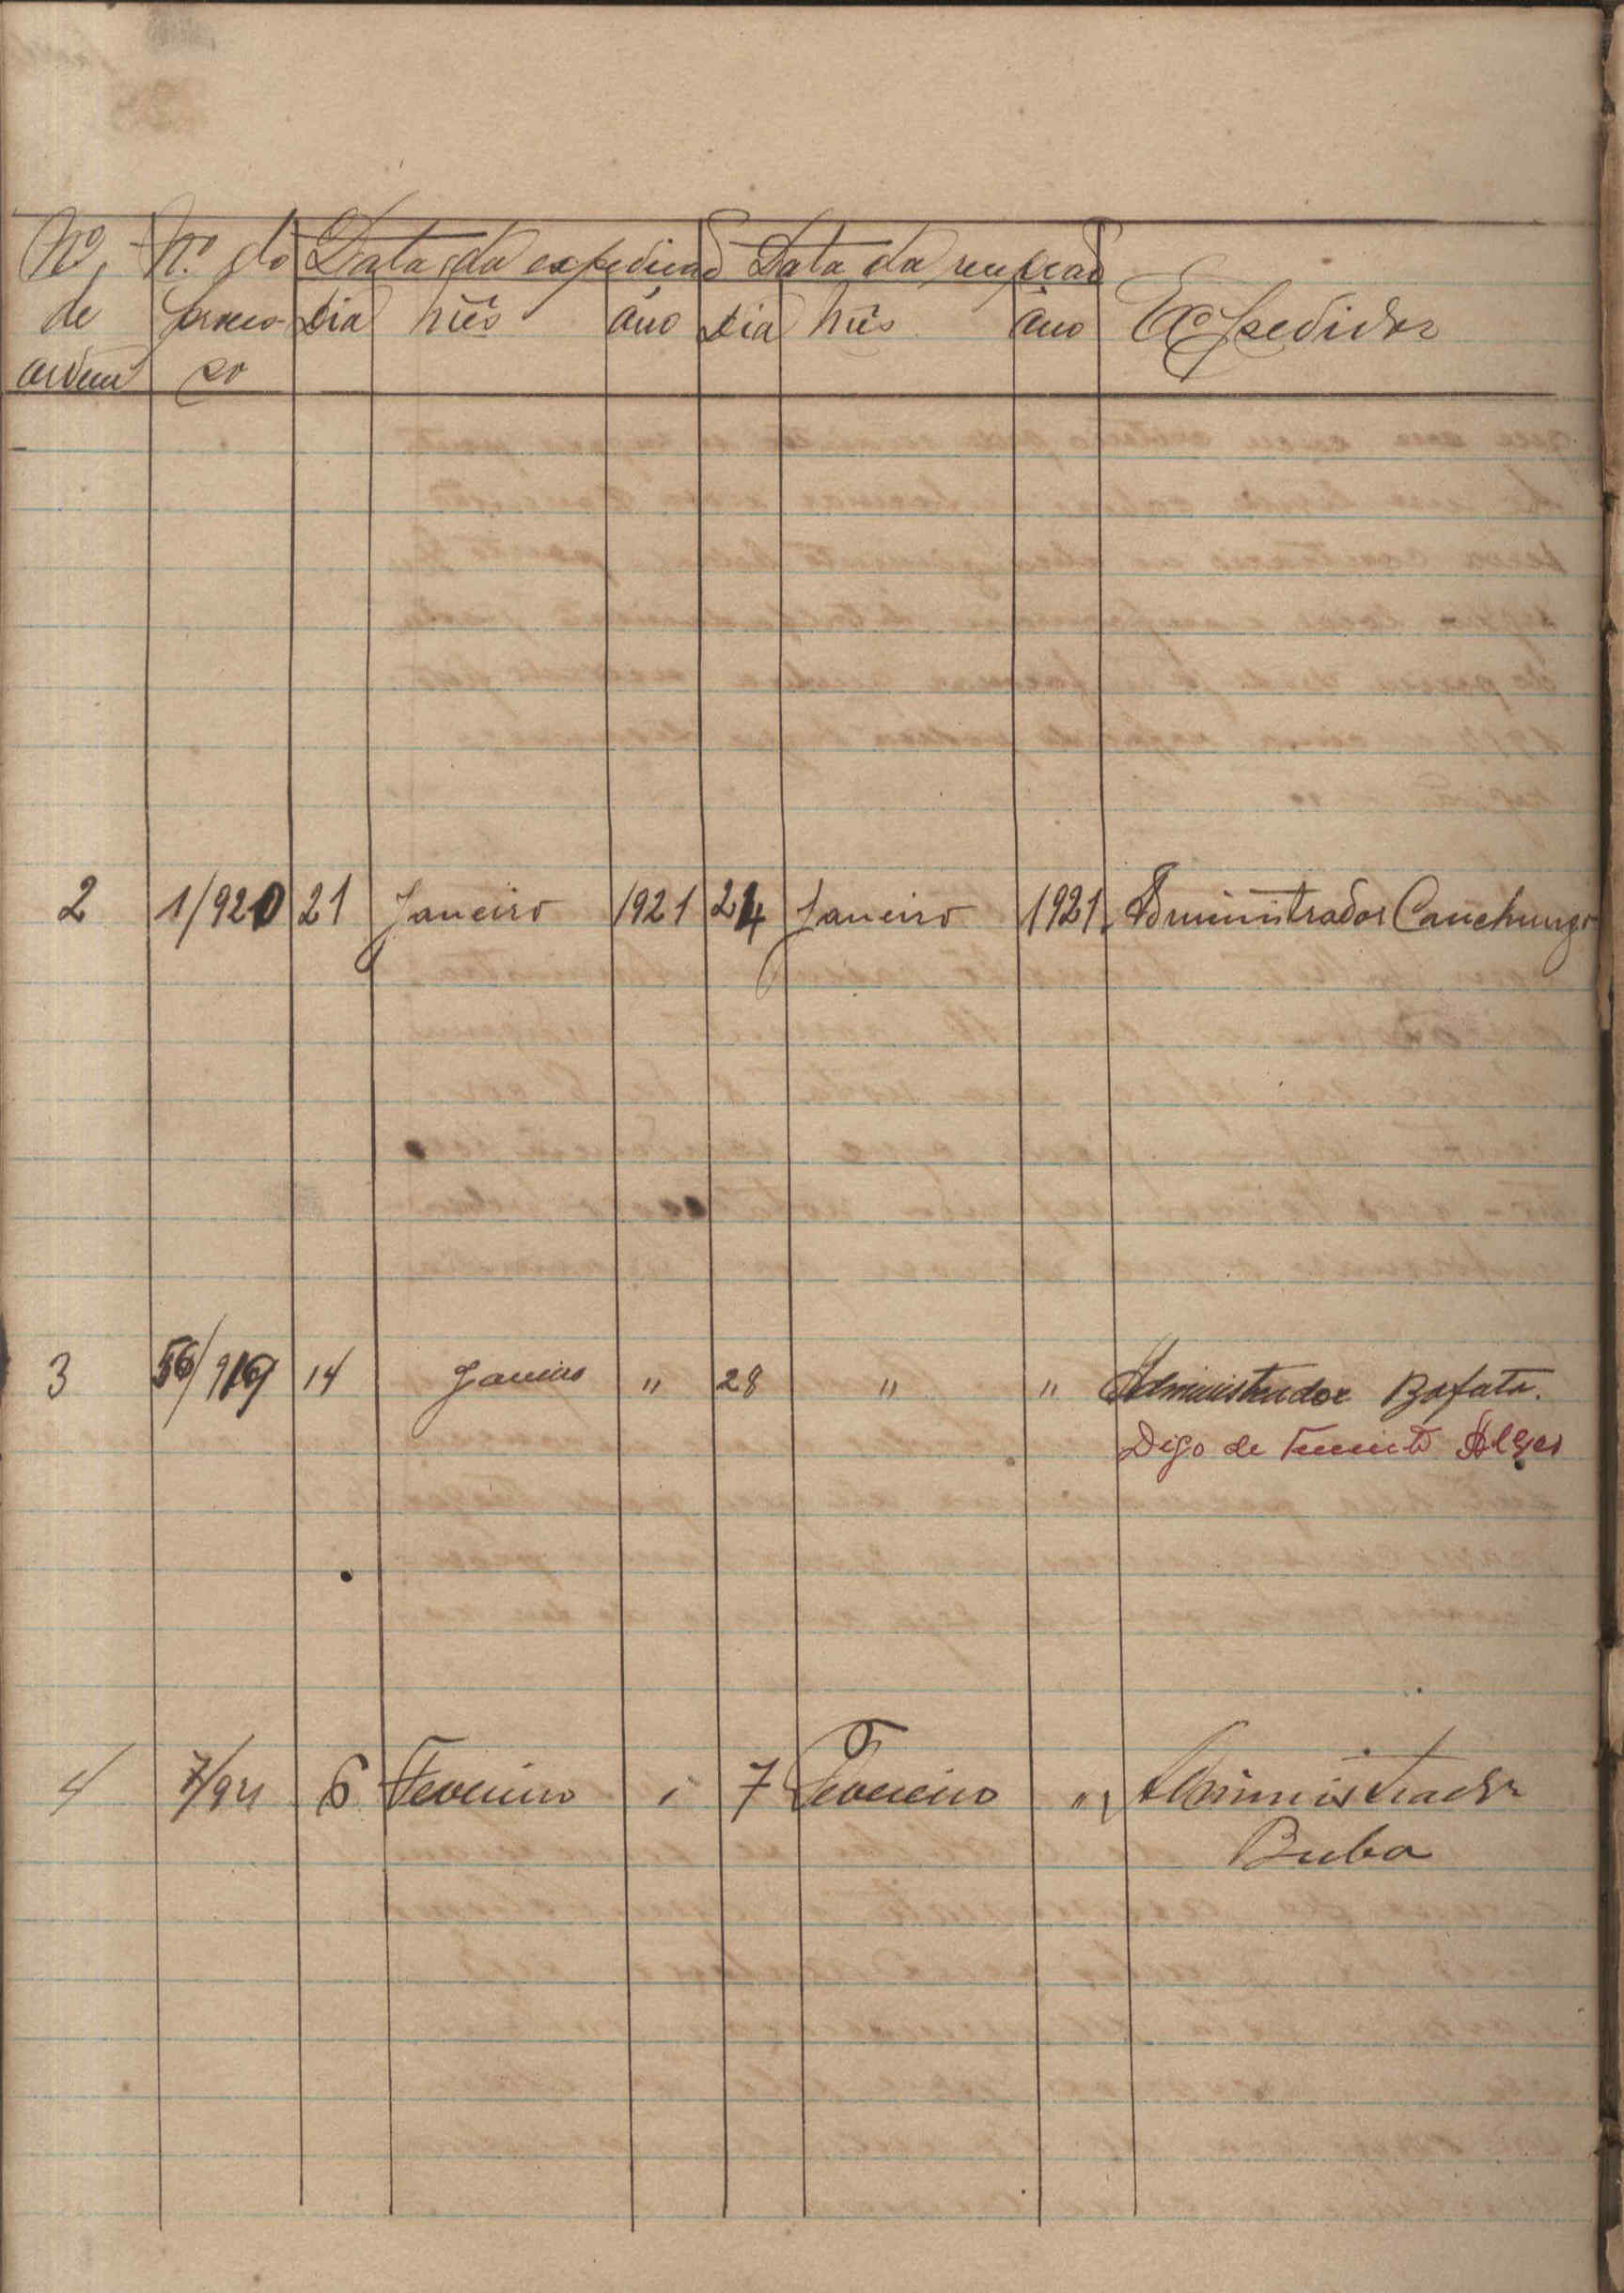 Nº Nº do Data da expedição Data da recepção
de proces- Dia mês âno Dia mês âno Expedidor
ordem so
2 1/920 21 Janeiro 1921 24 Janeiro 1921 Administrador Canchungo
3 56/919 14 Janeiro " 28 " " Administrador Bafata.
Digo de Tenente Alves
4 7/921 6 Fevereiro " 7 Fevereiro " Administrador
Buba